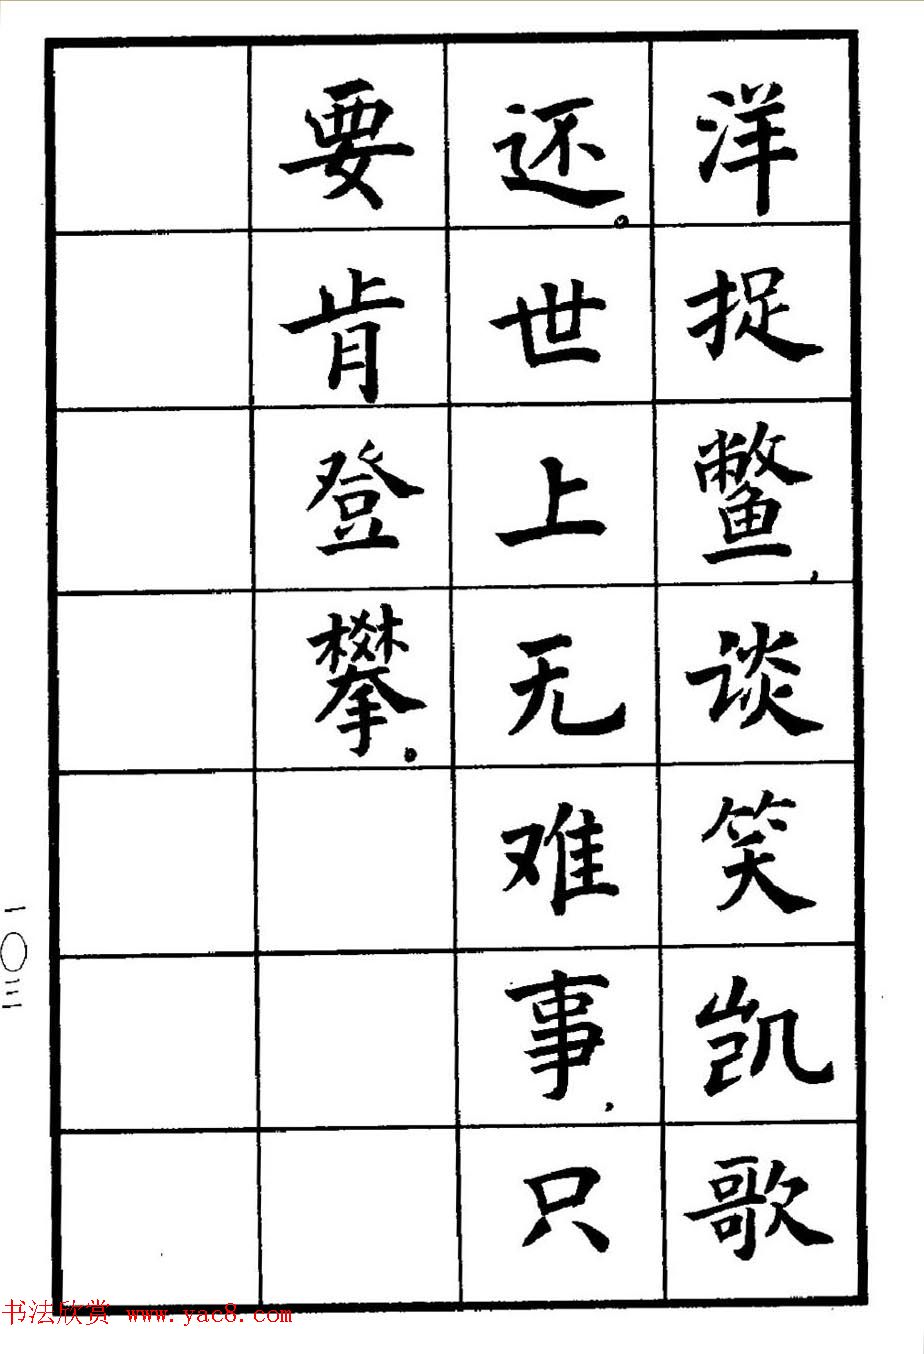 洋捉鳖,谈笑凯歌
还。世上无难事,只
要肯登攀。
一〇三
书法欣赏 www.yac8.com